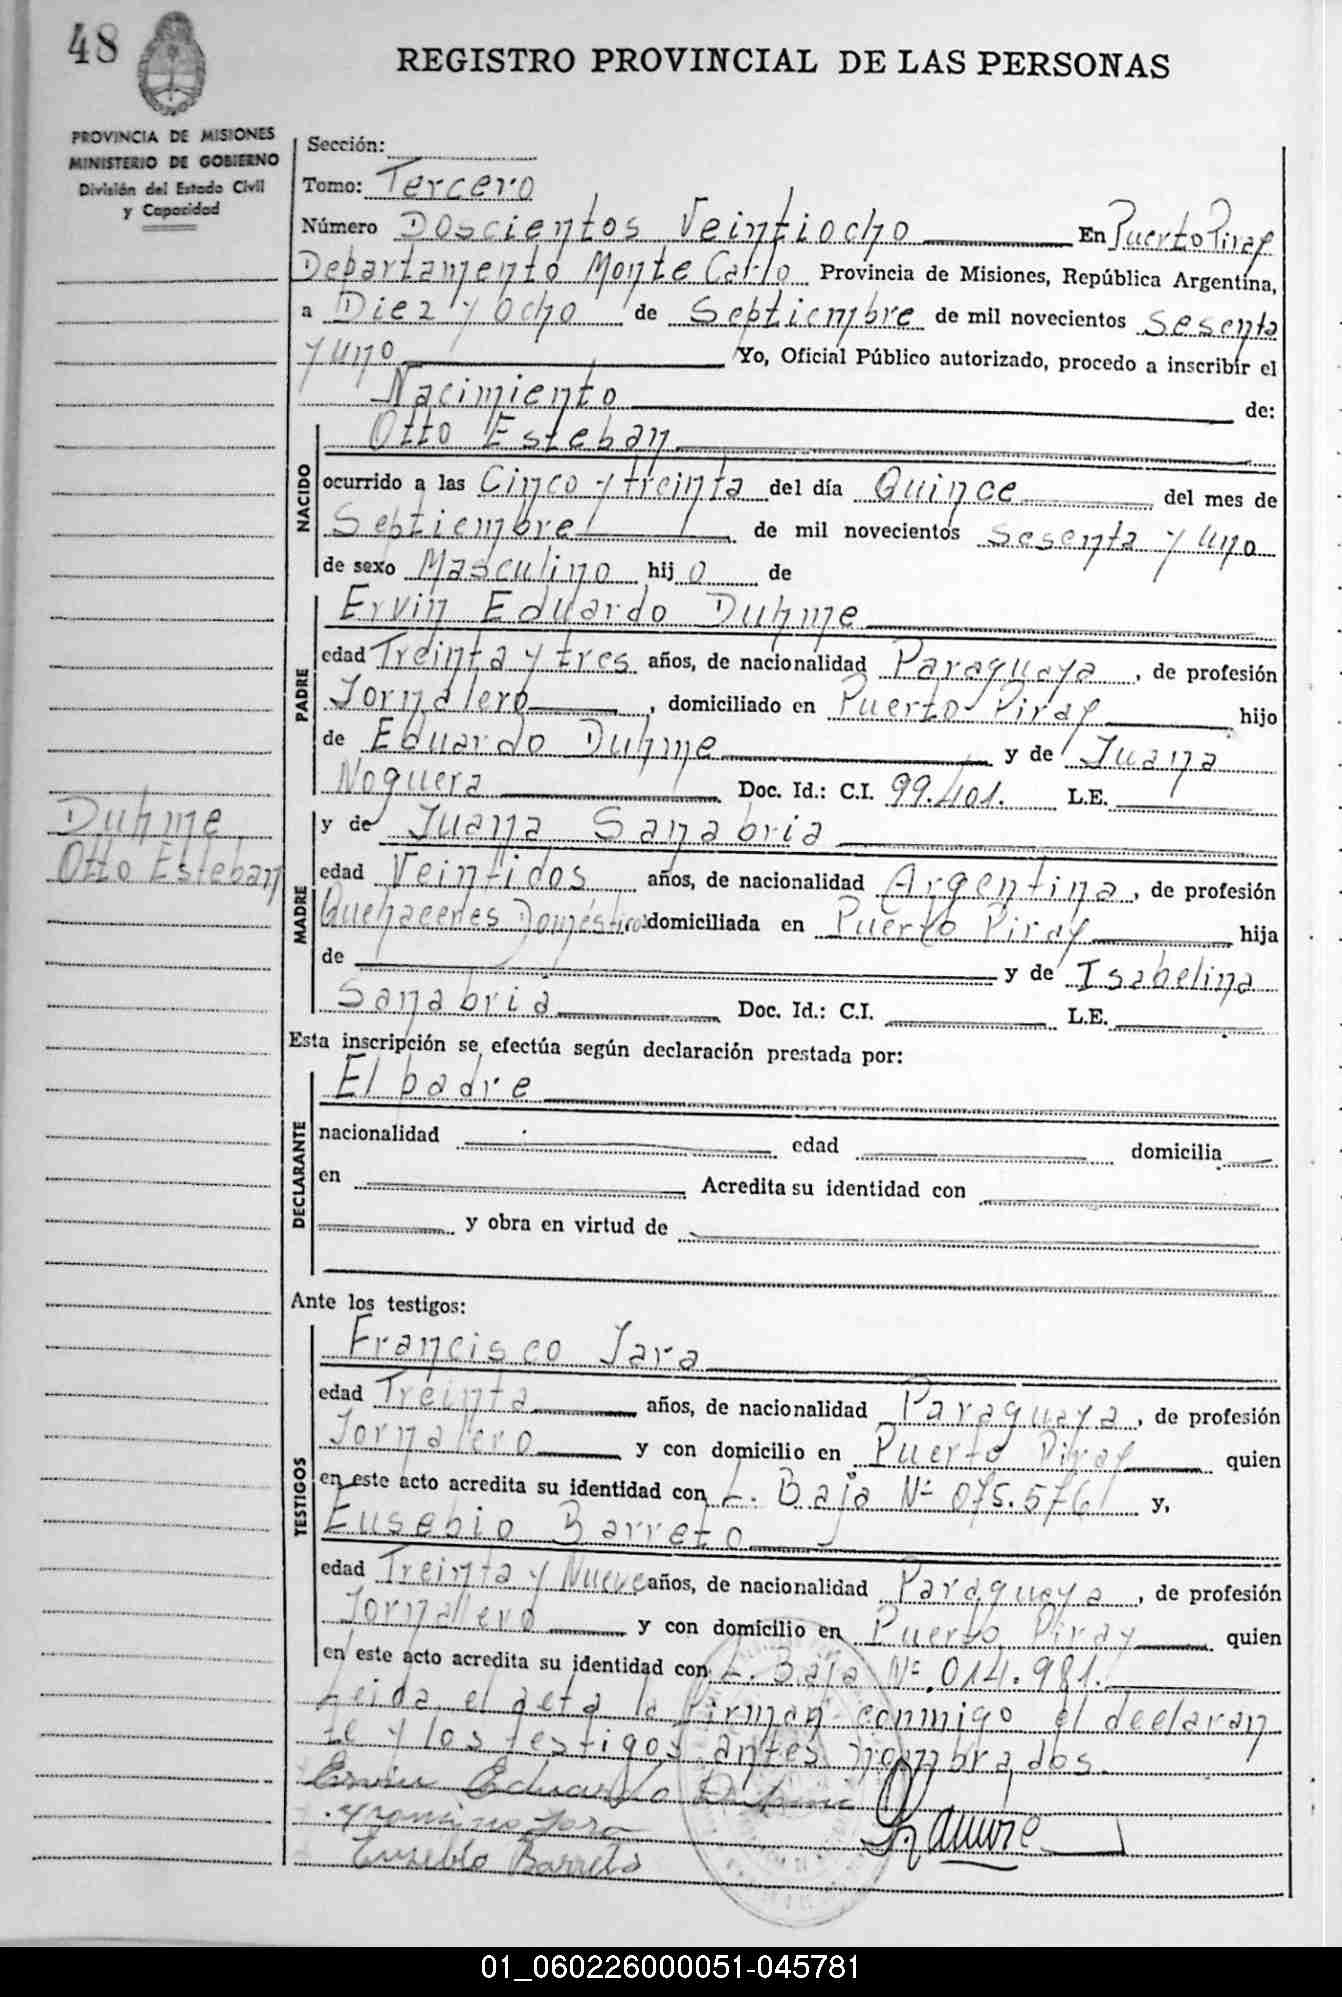 48
REGISTRO PROVINCIAL DE LAS PERSONAS
PROVINCIA DE MISIONES
MINISTERIO DE GOBIERNO
División del Estado Civil
y Capacidad
Sección:
Tomo: Tercero
Número Doscientos Veintiocho En Puerto Piray
Departamento Monte Carlo Provincia de Misiones, República Argentina,
a Diez y Ocho de Septiembre de mil novecientos Sesenta
y uno Yo, Oficial Público autorizado, procedo a inscribir el
Nacimiento de:
NACIDO
Otto Esteban
ocurrido a las Cinco y treinta del día Quince del mes de
Septiembre de mil novecientos Sesenta y uno
de sexo Masculino hijo de
PADRE
Ervin Eduardo Duhme
edad Treinta y tres años, de nacionalidad Paraguaya, de profesión
Jornalero, domiciliado en Puerto Piray hijo
de Eduardo Duhme y de Juana
Noguera Doc. Id.: C.I. 99.401. L.E.
Duhme
Otto Esteban
MADRE
y de Juana Sanabria
edad Veintidos años, de nacionalidad Argentina, de profesión
Quehaceres Domésticos domiciliada en Puerto Piray hija
de y de Isabelina
Sanabria Doc. Id.: C.I. L.E.
Esta inscripción se efectúa según declaración prestada por:
DECLARANTE
El padre
nacionalidad edad domicilia
en Acredita su identidad con
y obra en virtud de
Ante los testigos:
TESTIGOS
Francisco Jara
edad Treinta años, de nacionalidad Paraguaya, de profesión
Jornalero y con domicilio en Puerto Piray quien
en este acto acredita su identidad con L. Baja Nº 075.576 y,
Eusebio Barreto
edad Treinta y Nueve años, de nacionalidad Paraguaya, de profesión
Jornalero y con domicilio en Puerto Piray quien
en este acto acredita su identidad con L. Baja Nº 014.981.
Leida el acta la firman conmigo el declaran
te y los testigos antes nombrados.
Ervin Eduardo Duhme
Eusebio Barreto
01_060226000051-045781